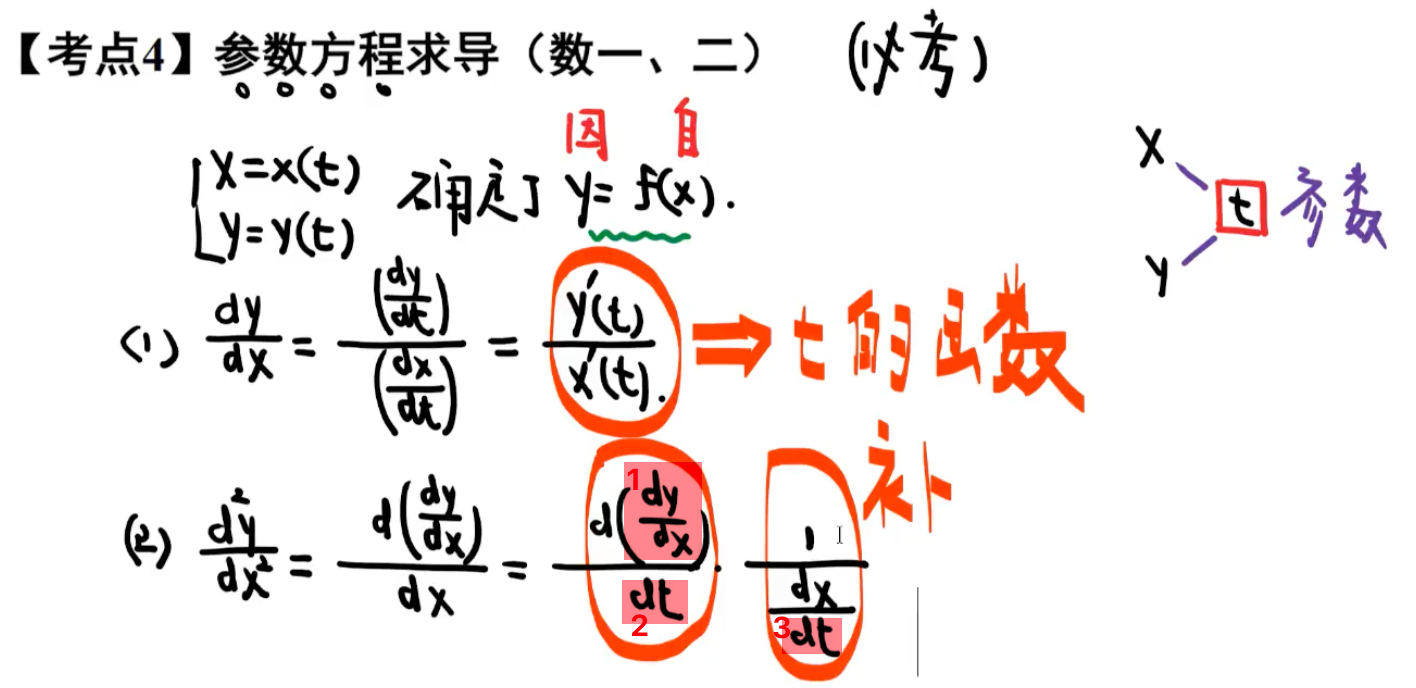 【考点4】参数方程求导（数一、二） （必考）
因 自
{x=x(t) y=y(t) 确定了 y=f(x).
x y t 参数
(1) dy/dx = (dy/dt)/(dx/dt) = y'(t)/x'(t). ⇒ t的函数
补
(2) d²y/dx² = d(dy/dx)/dx = d(dy/dx)/dt · 1/(dx/dt)
1
2
3